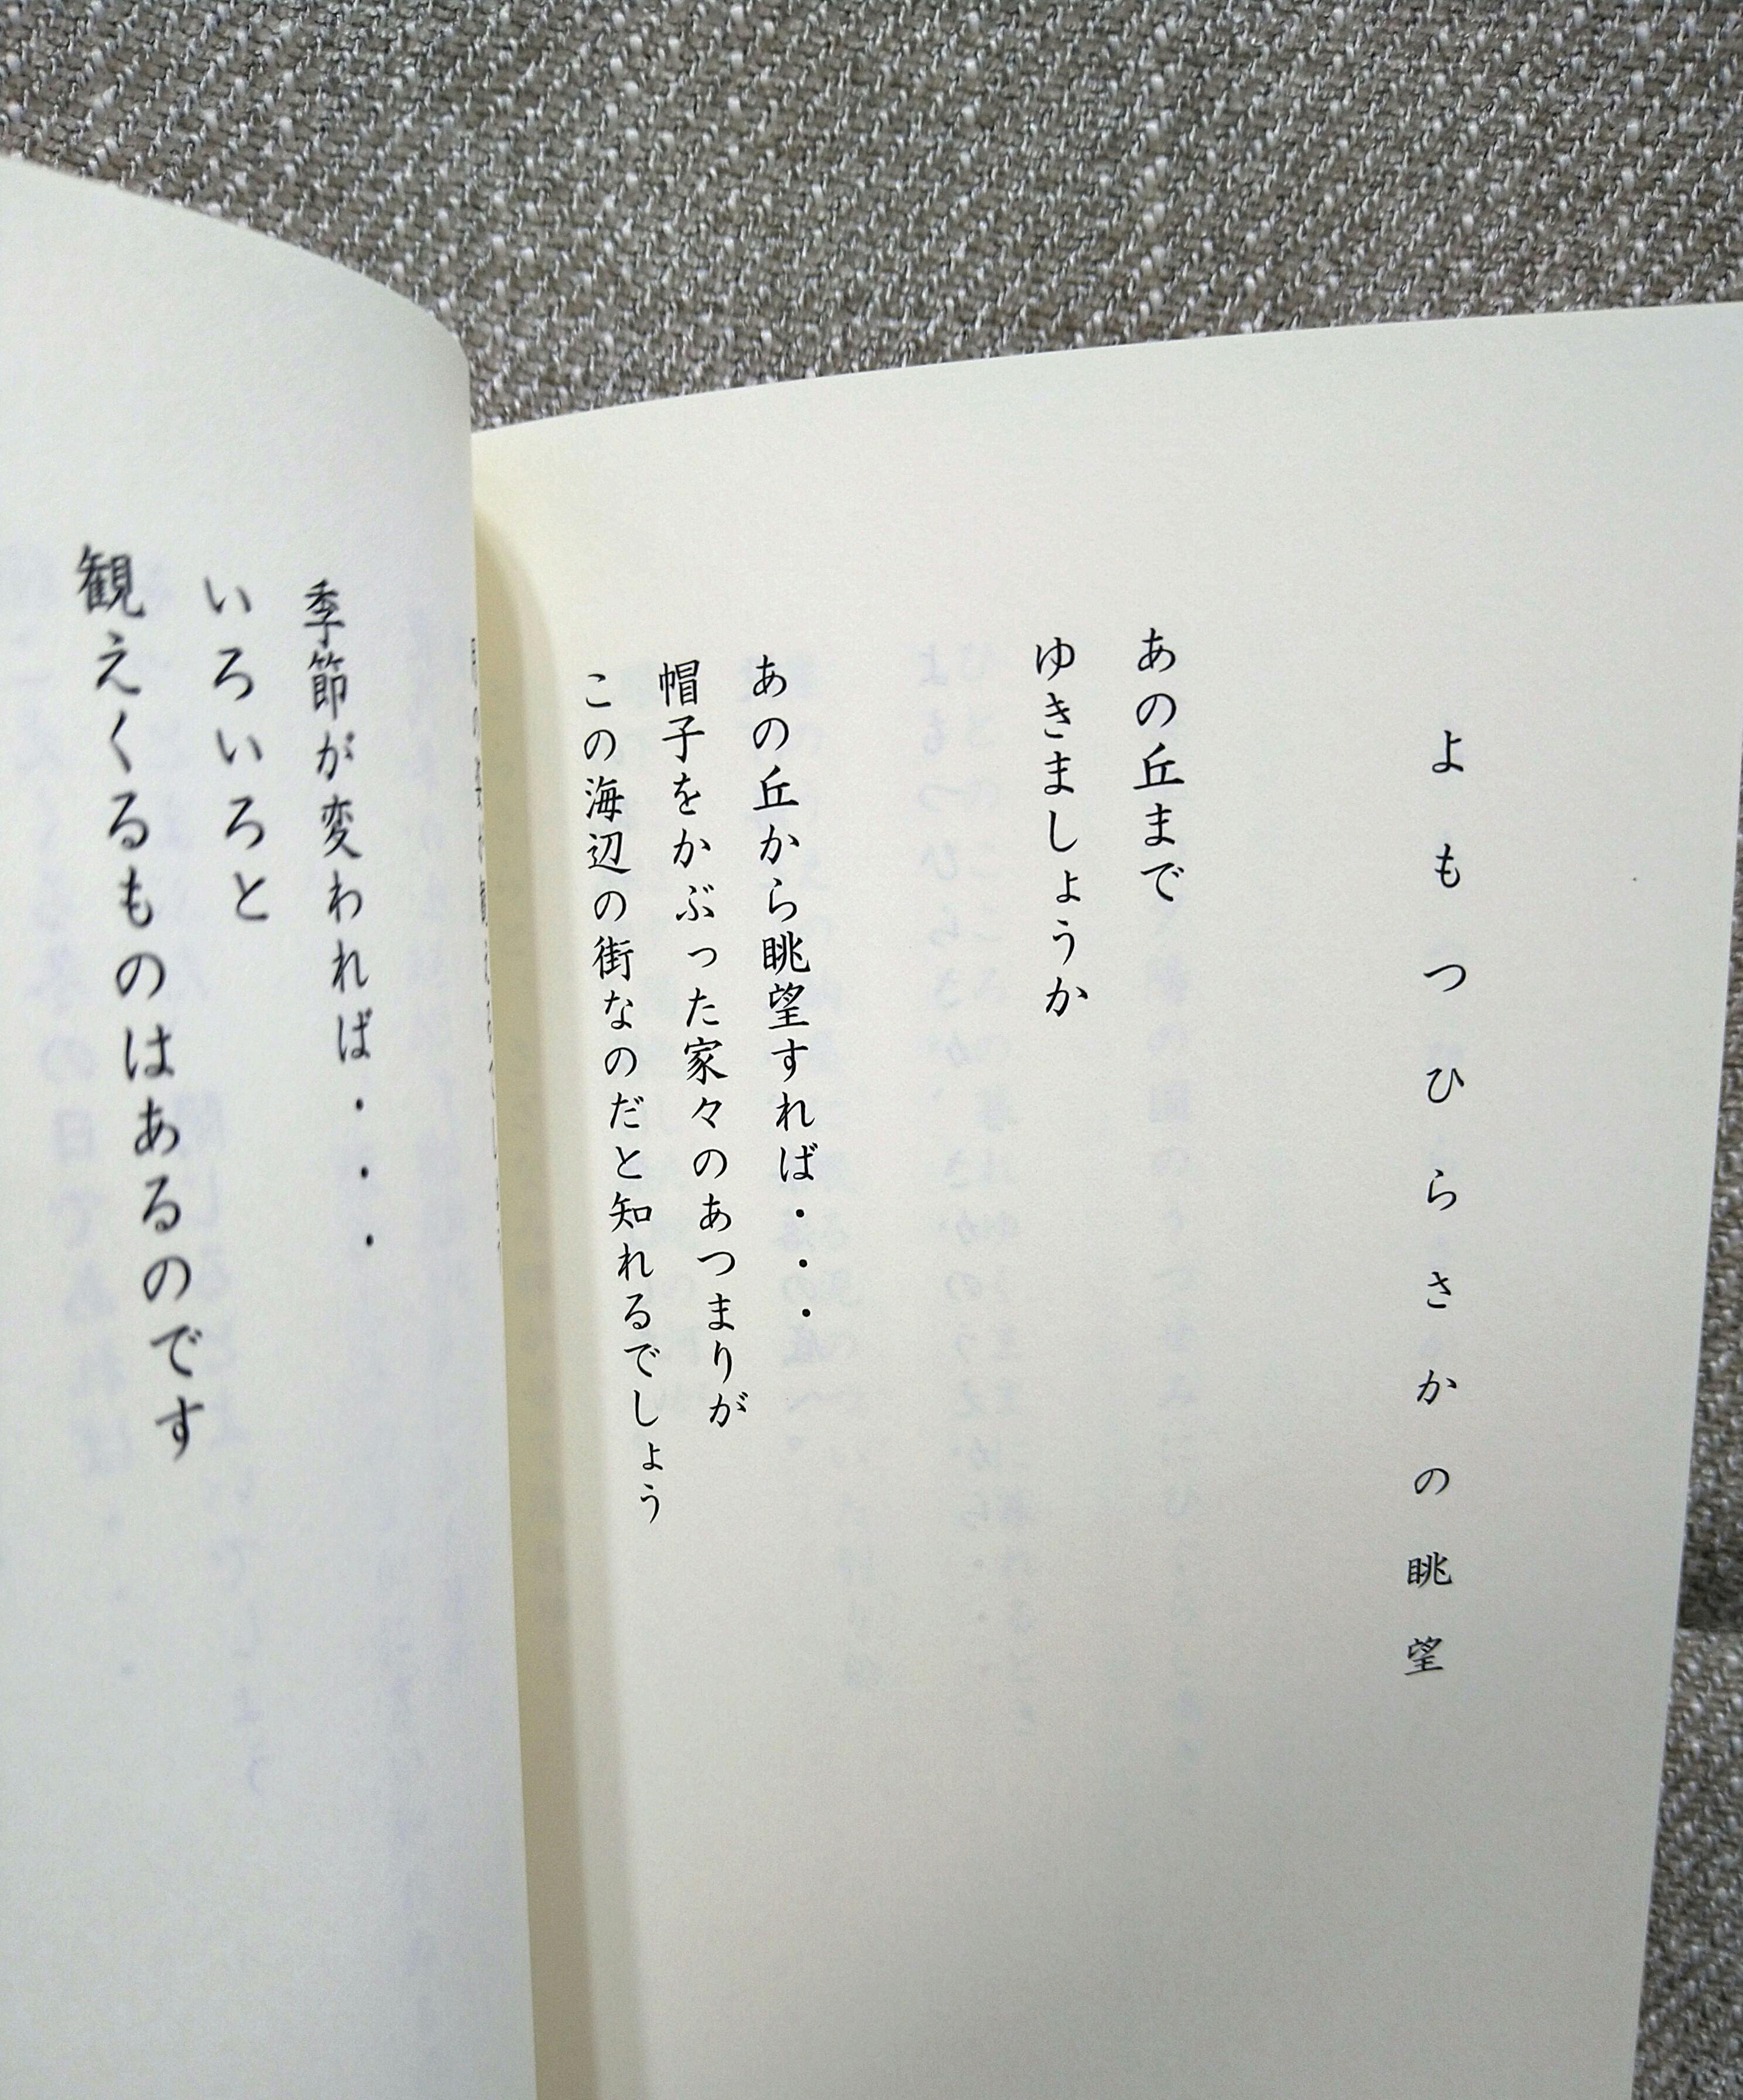 よもつひらさかの眺望
あの丘まで
ゆきましょうか
あの丘から眺望すれば・・・
帽子をかぶった家々のあつまりが
この海辺の街なのだと知れるでしょう
季節が変われば・・・
いろいろと
観えくるものはあるのです